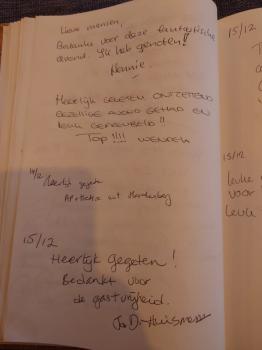 Lieve mensen,
Bedankt voor deze fantastische
avond. Ik heb genoten!
Rennie.
Heerlijk gegeten ontzettend
gezellige avond gehad en
leuk geborreld!!
Top!!!!
14/12 Heerlijk gegeten
uit
15/12
Heerlijk gegeten!
Bedankt voor
de gastvrijheid.
15/12
15/12
leuke
voor
leuk